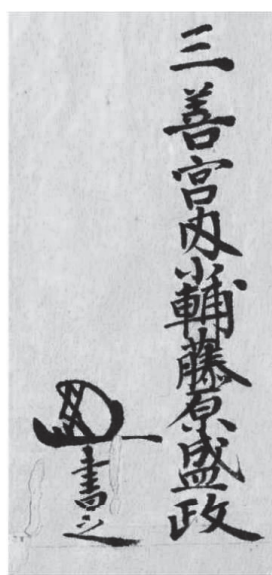 三善宮内少輔藤原盛政
書之